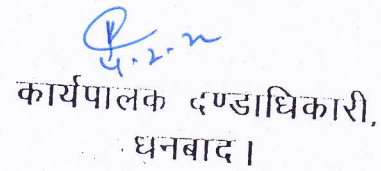 कार्यपालक दण्डाधिकारी,
धनबाद।